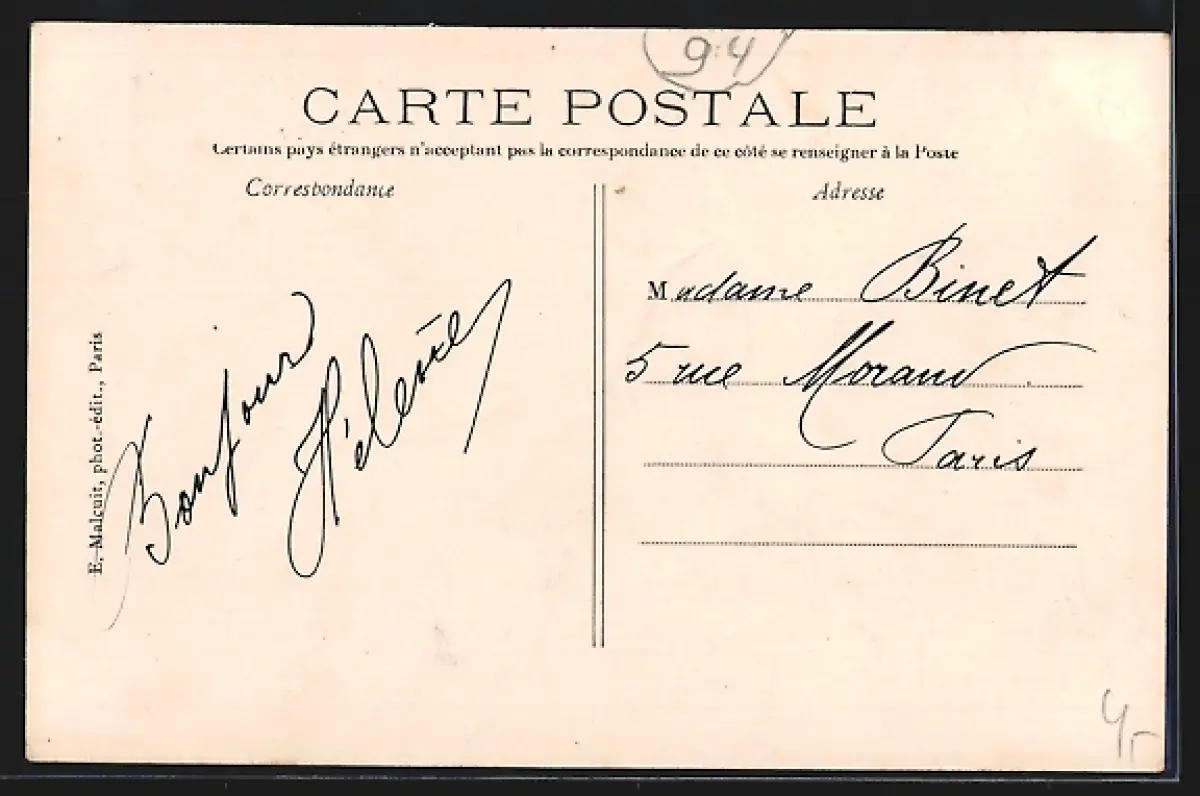 94
CARTE POSTALE
Certains pays étrangers n'acceptent pas la correspondance de ce côté se renseigner à la Poste
Correspondance
Adresse
E. Malcuit, phot.-édit., Paris
Bonjour
Madame Binet
5 rue Morand
Paris